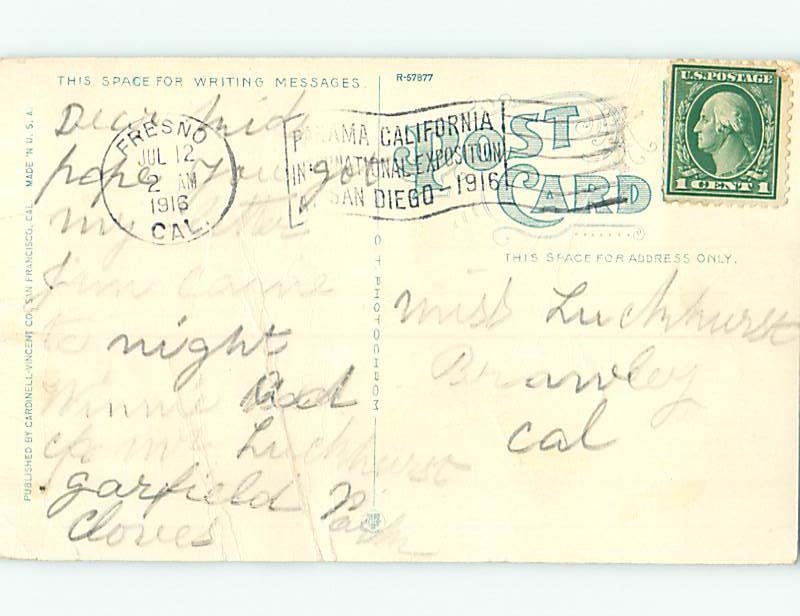 THIS SPACE FOR WRITING MESSAGES.
R-57877
POST CARD
FRESNO
JUL 12
2 AM
1916
CAL.
PANAMA CALIFORNIA
INTERNATIONAL EXPOSITION
SAN DIEGO - 1916
U.S. POSTAGE
1 CENT 1
Dear
hope you got
my letter
Jim came
to night
Winnie
c/o mr Luckhurst
garfield
Cloves
THIS SPACE FOR ADDRESS ONLY.
miss Luckhurst
Brawley
Cal
PUBLISHED BY CARDINELL-VINCENT CO., SAN FRANCISCO, CAL. MADE IN U.S.A.
PHOTOCHROM